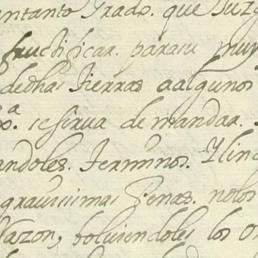 entanto Grado. que Juzg
fructificar. parasu muy
dedhas tierras aalgunos
xª. sesirua de mandar.
andoles. terminos. Ylind
grauissimas Penas. nolos
Razon, boluiendoles los O